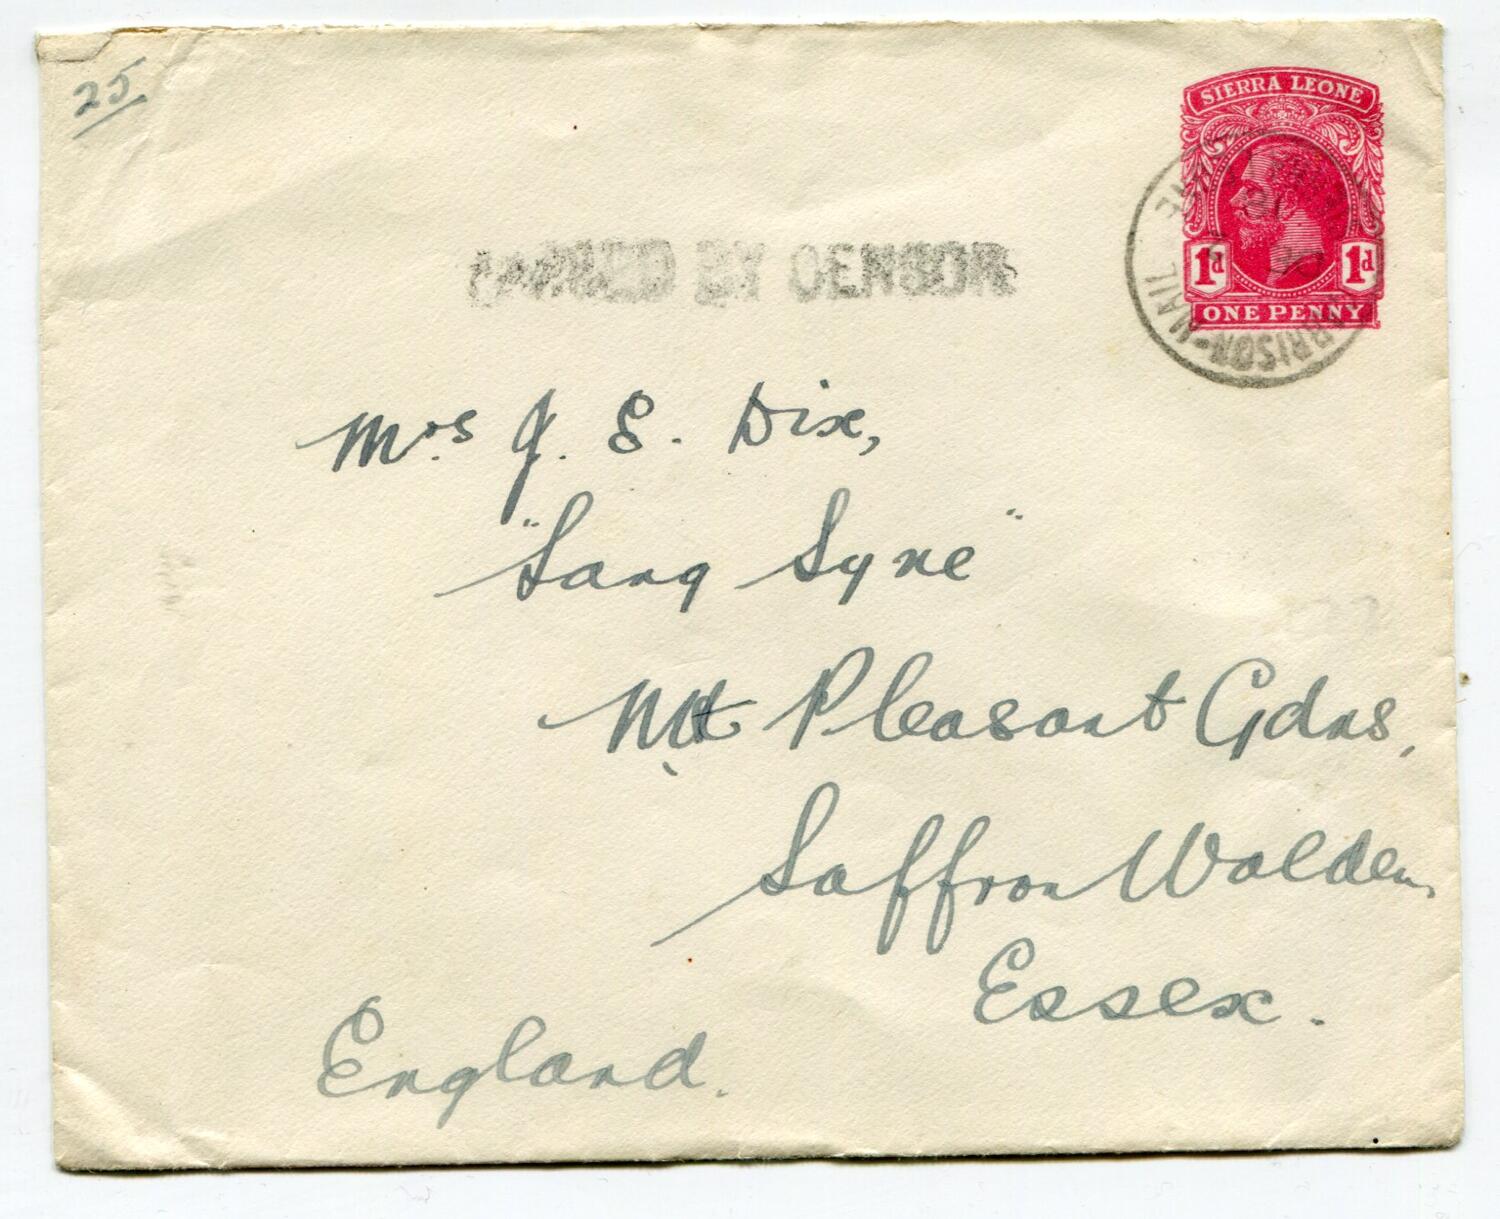 25
SIERRA LEONE
1d 1d
ONE PENNY
GARRISON-MAIL
PASSED BY CENSOR
Mrs. J. E. Dix,
"Lang Syne"
Mt Pleasant Gdns,
Saffron Walden,
Essex.
England.